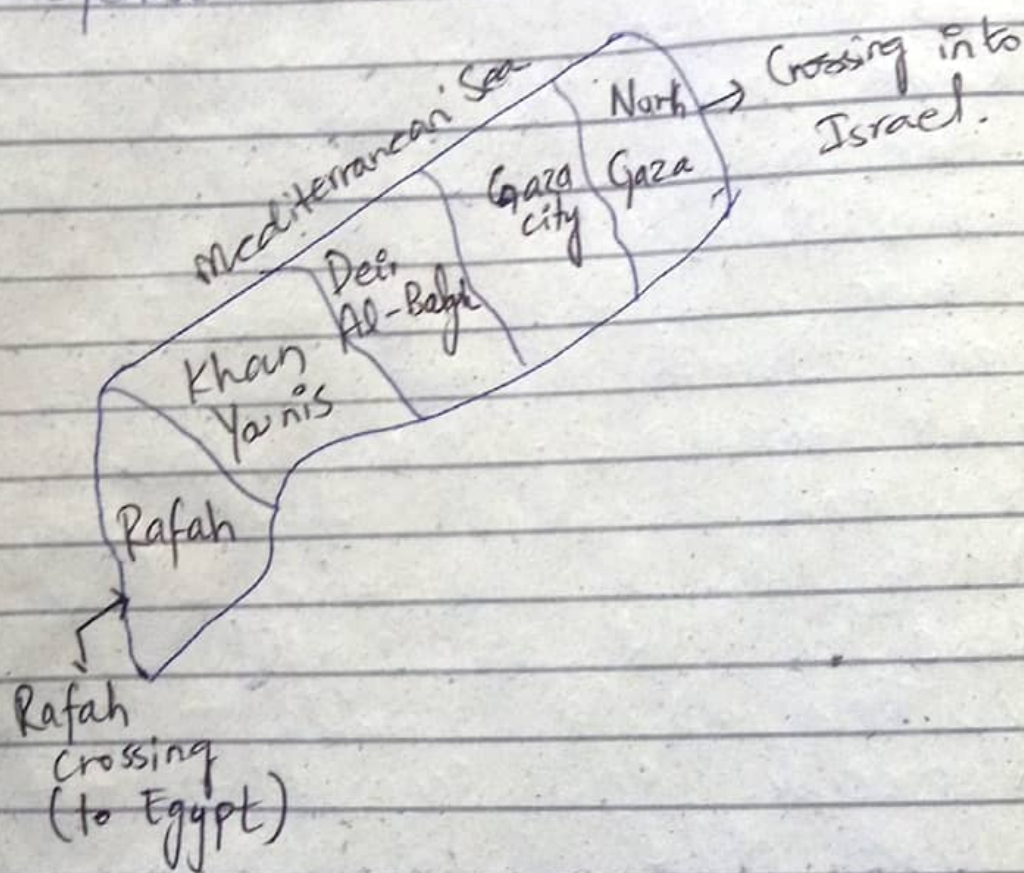 Mediterranean Sea
North
Gaza
Crossing into
Israel.
Gaza
city
Deir
Al-Balah
Khan
Younis
Rafah
Rafah
Crossing
(to Egypt)